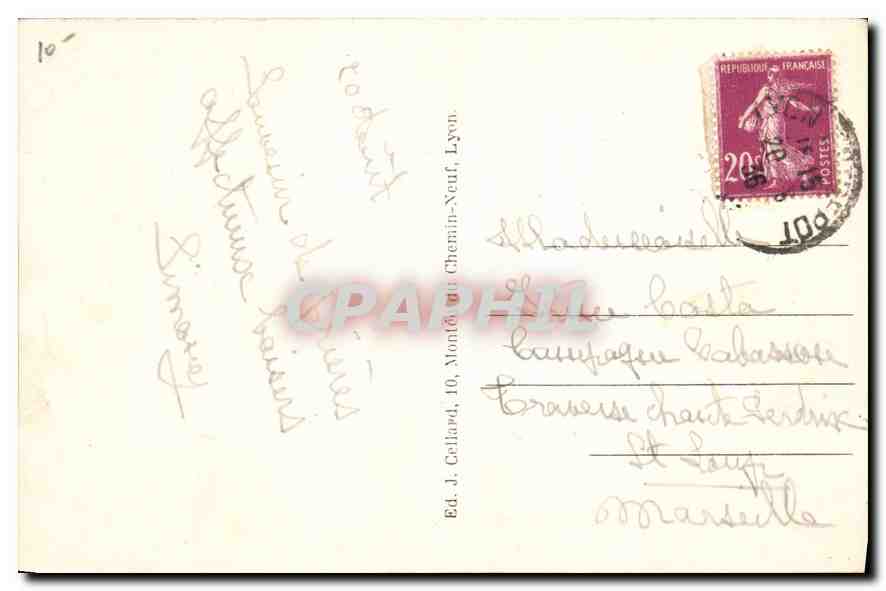 10-
20 Août
Souvenir de
affectueux baisers
Simone
Ed. J. Cellard, 10, Montée du Chemin-Neuf, Lyon.
REPUBLIQUE FRANÇAISE
20c
POSTES
LYON
15
28
36
DEPOT
CPAPHIL
Mademoiselle
Costa
Campagne
Traverse chante Perdrix
St Loup
Marseille